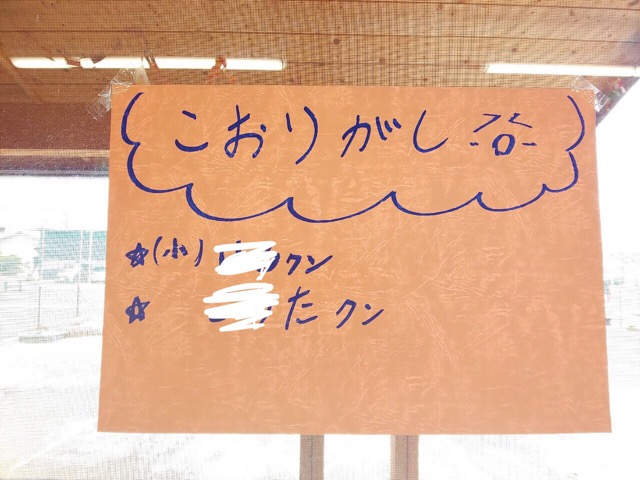 こおりがし
☆(小) クン
☆ たクン